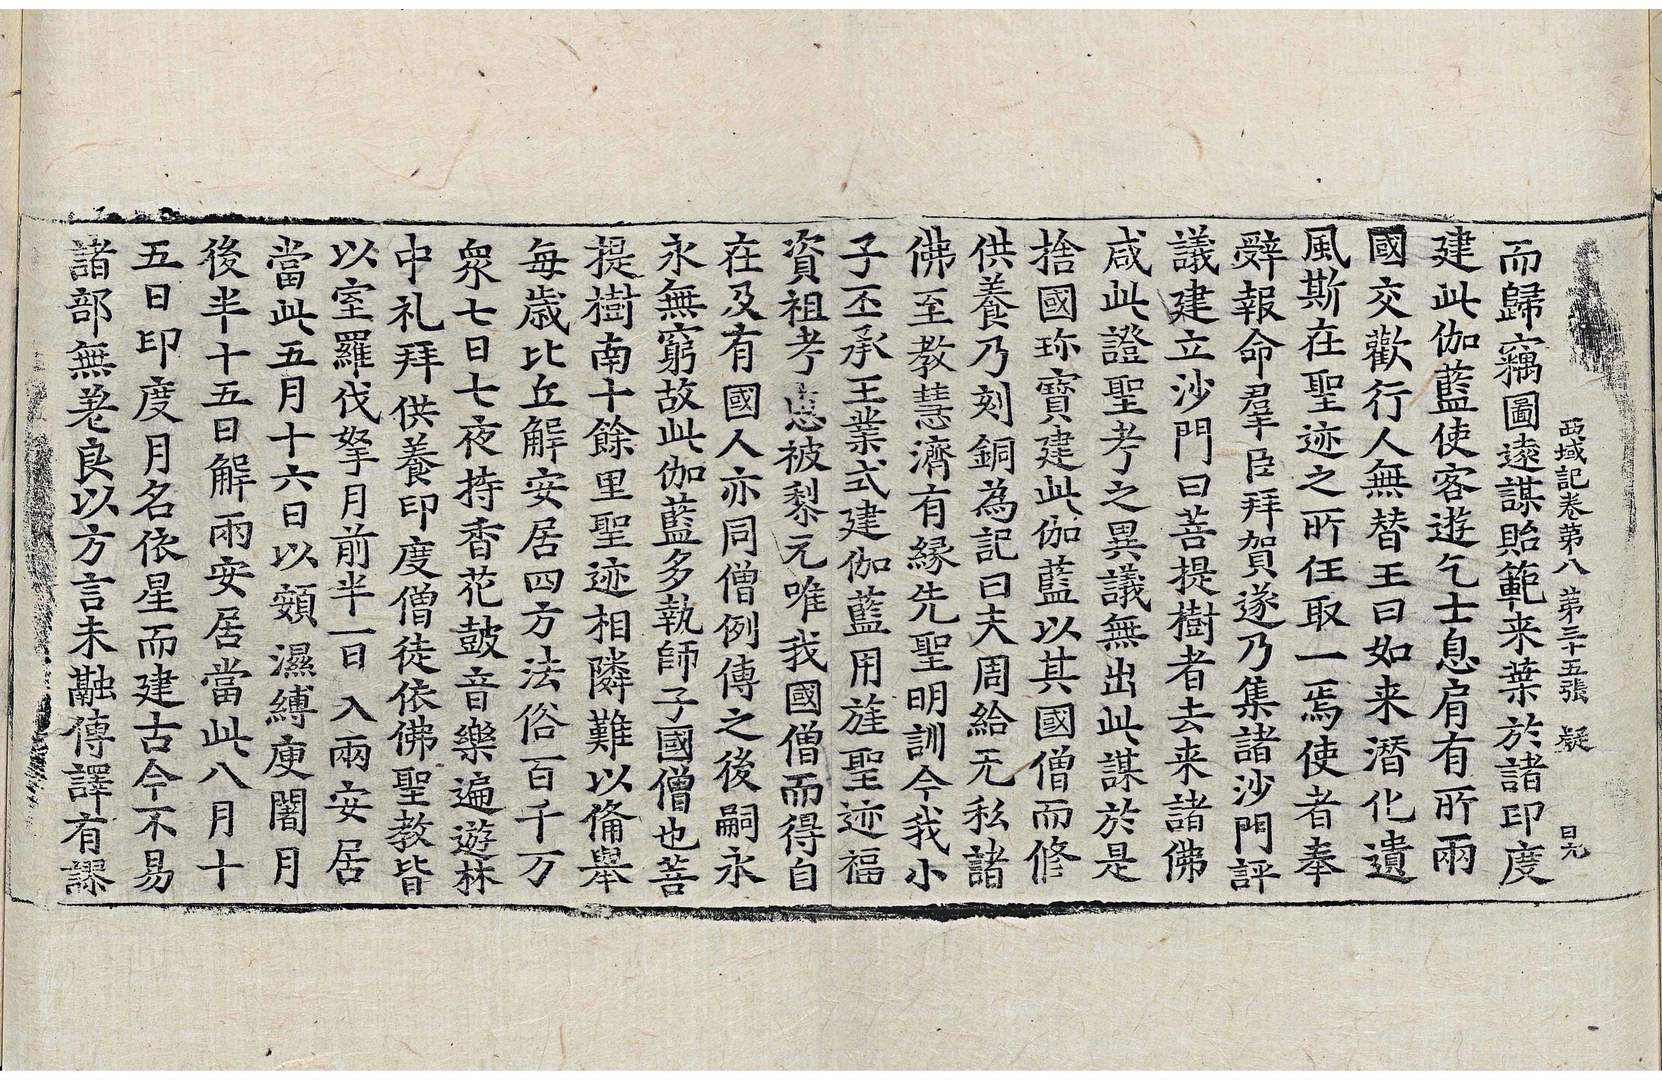 西域記卷第八 第三十五張 疑 日九
而歸竊圖遠謀貽範来葉於諸印度
建此伽藍使客遊乞士息肩有所兩
國交歡行人無替王曰如来潜化遺
風斯在聖迹之所任取一焉使者奉
辭報命群臣拜賀遂乃集諸沙門評
議建立沙門曰菩提樹者去来諸佛
咸此證聖考之異議無出此謀於是
捨國珎寶建此伽藍以其國僧而修
供養乃刻銅為記曰夫周給无私諸
佛至教慧濟有緣先聖明訓今我小
子丕承王業式建伽藍用旌聖迹福
資祖考惠被黎元唯我國僧而得自
在及有國人亦同僧例傳之後嗣永
永無窮故此伽藍多執師子國僧也菩
提樹南十餘里聖迹相隣難以備舉
每歲比丘解安居四方法俗百千万
衆七日七夜持香花鼓音樂遍遊林
中礼拜供養印度僧徒依佛聖教皆
以室羅伐拏月前半一日入兩安居
當此五月十六日以頞濕縛庾闍月
後半十五日解雨安居當此八月十
五日印度月名依星而建古今不易
諸部無差良以方言未融傳譯有謬